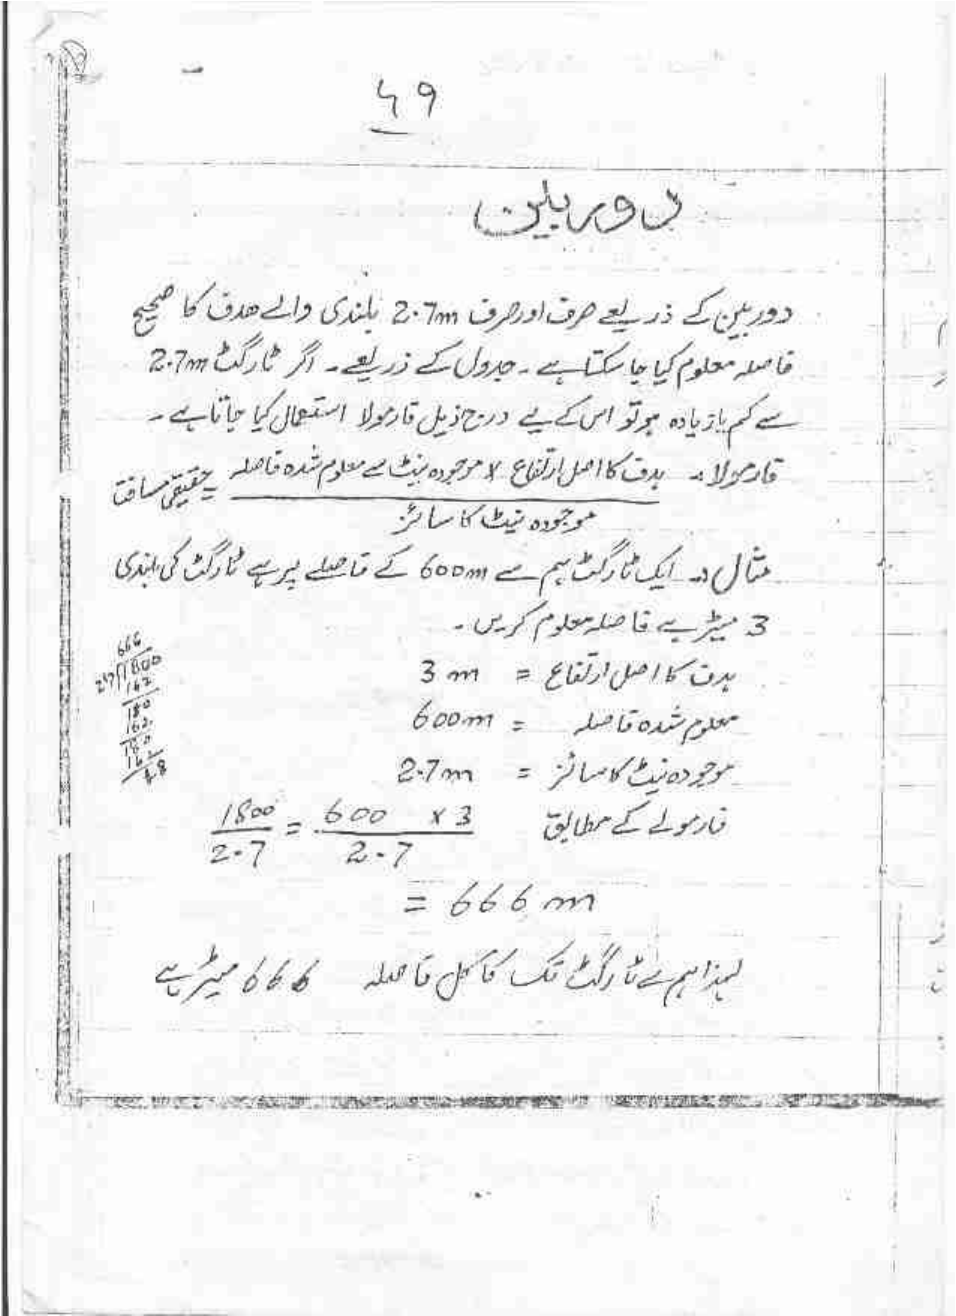 49
دوربین
دوربین کے ذریعے صرف اور صرف 2.7m بلندی والے ھدف کا صحیح
فاصلہ معلوم کیا جا سکتا ہے۔ جدول کے ذریعے۔ اگر ٹارگٹ 2.7m
سے کم یا زیادہ ہو تو اس کے لیے درج ذیل فارمولا استعمال کیا جاتا ہے۔
فارمولا:۔ ہدف کا اصل ارتفاع x موجودہ نیٹ سے معلوم شدہ فاصلہ = حقیقی مسافت
موجودہ نیٹ کا سائز
مثال:۔ ایک ٹارگٹ ہم سے 600m کے فاصلے پر ہے ٹارگٹ کی بلندی
3 میٹر ہے فاصلہ معلوم کریں۔
ہدف کا اصل ارتفاع = 3 m
معلوم شدہ فاصلہ = 600m
موجودہ نیٹ کا سائز = 2.7m
فارمولے کے مطابق 1800 = 600 x 3
2.7 2.7
= 666 m
لہذا ہم سے ٹارگٹ تک کا کل فاصلہ 666 میٹر ہے
666
27 1800
162
180
162
180
162
18